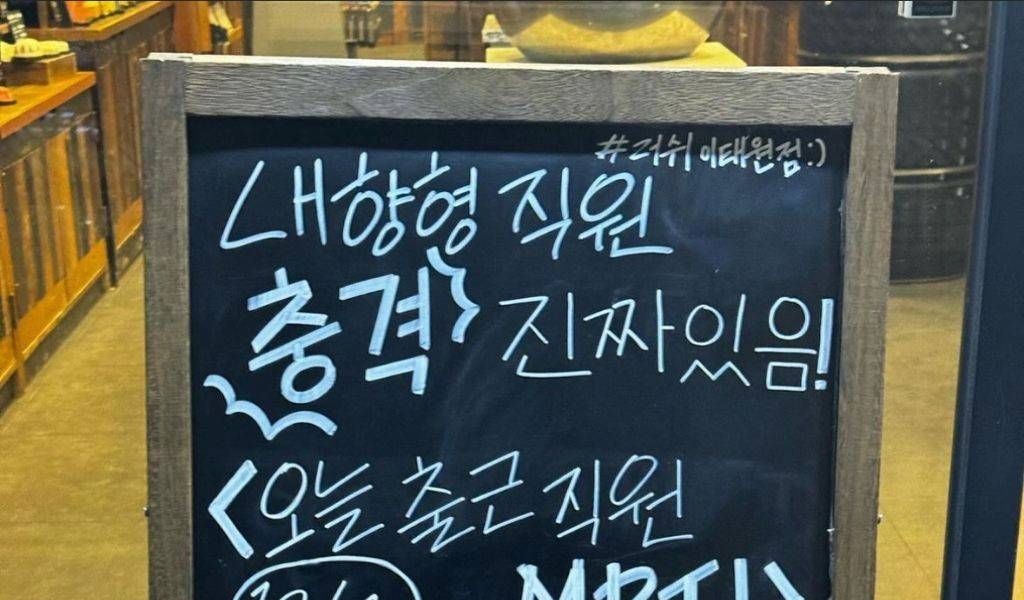 #러쉬 이태원점:)
내향형 직원
충격 진짜있음!
<오늘 출근 직원
MBTI>